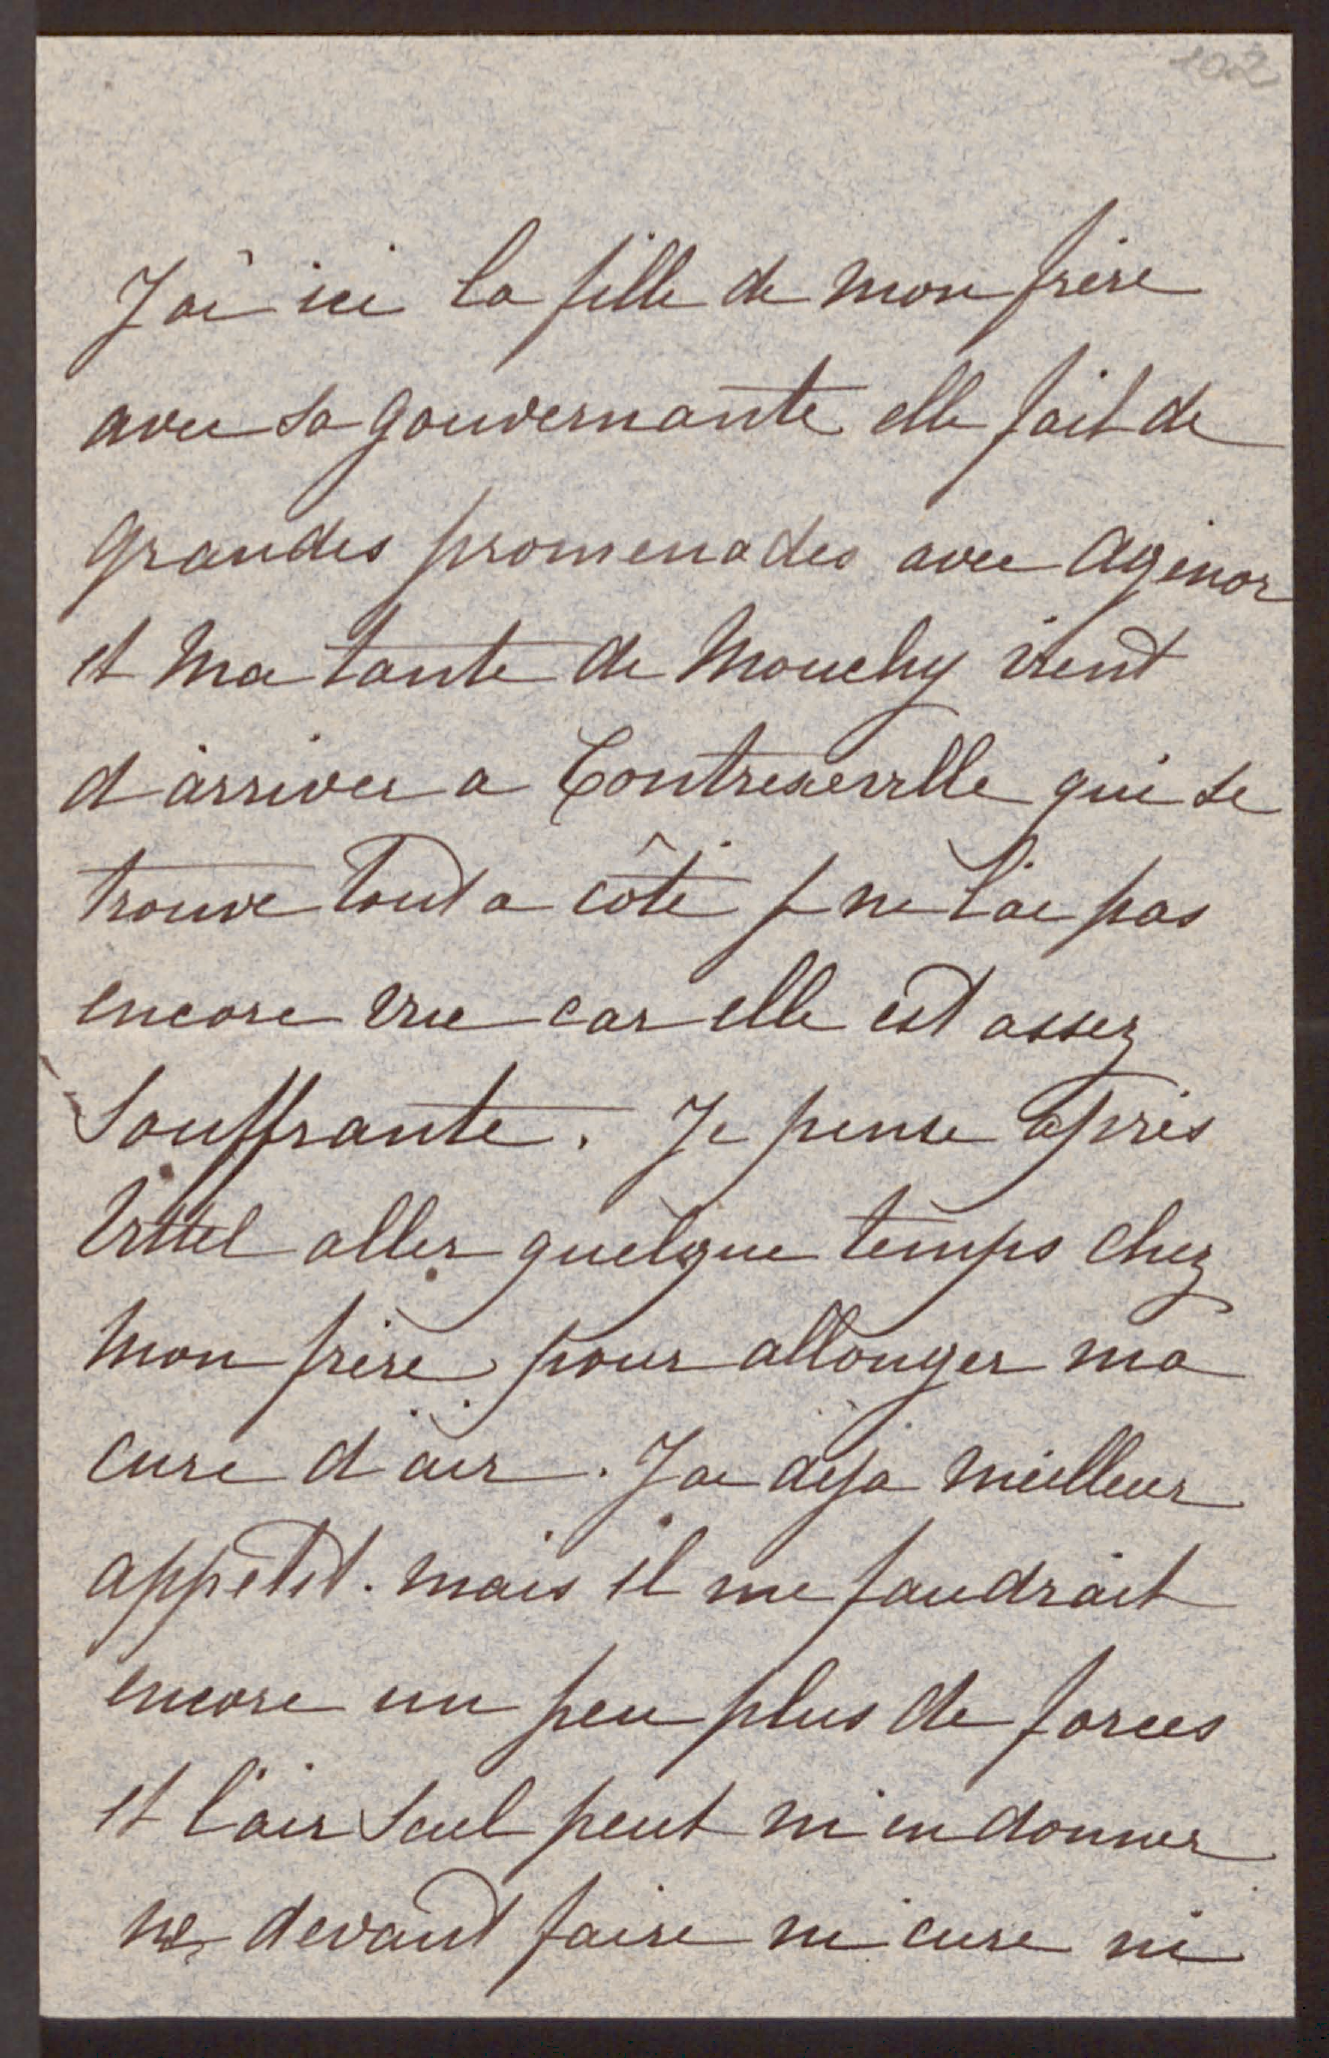 102
J'ai ici la fille de mon frère
avec sa gouvernante elle fait de
grandes promenades avec Agénor
et ma tante de Mouchy vient
d'arriver a Contrexeville qui se
trouve tout a côté je ne l'ai pas
encore vue car elle est assez
souffrante. Je pense après
Vittel aller quelque temps chez
mon frère pour allonger ma
cure d'air. J'ai déja meilleur
appétit. mais il me faudrait
encore un peu plus de forces
et l'air seul peut m'en donner
ne devant faire ni cure ni